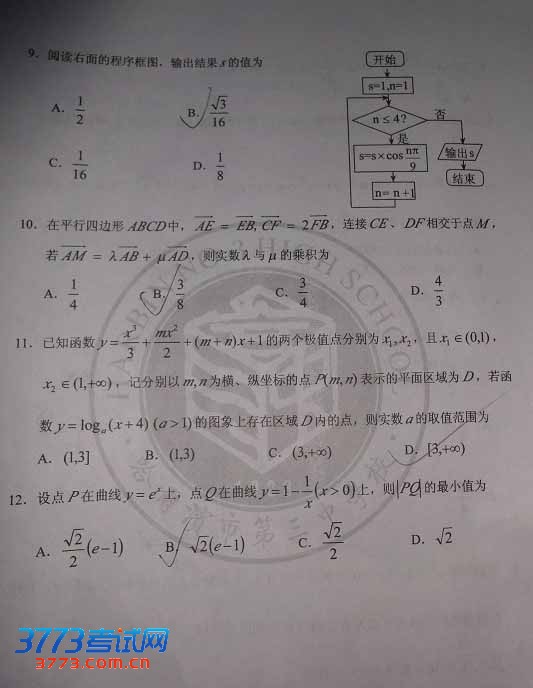 9. 阅读右面的程序框图，输出结果 s 的值为
A. 1/2 B. √3/16
C. 1/16 D. 1/8
开始
s=1,n=1
n ≤ 4?
否
是
s=s×cos nπ/9
输出s
n= n +1
结束
10. 在平行四边形 ABCD 中，AE = EB, CF = 2FB，连接 CE、DF 相交于点 M，
若 AM = λAB + μAD，则实数 λ 与 μ 的乘积为
A. 1/4 B. 3/8 C. 3/4 D. 4/3
11. 已知函数 y = x³/3 + mx²/2 + (m+n)x+1 的两个极值点分别为 x₁,x₂，且 x₁∈(0,1)，
x₂∈(1,+∞)，记分别以 m,n 为横、纵坐标的点 P(m,n) 表示的平面区域为 D，若函
数 y = logₐ(x+4) (a>1) 的图象上存在区域 D 内的点，则实数 a 的取值范围为
A. (1,3] B. (1,3) C. (3,+∞) D. [3,+∞)
12. 设点 P 在曲线 y = eˣ 上，点 Q 在曲线 y = 1 − 1/x (x>0) 上，则 |PQ| 的最小值为
A. √2/2 (e−1) B. √2(e−1) C. √2/2 D. √2
3773考试网
3773.com.cn